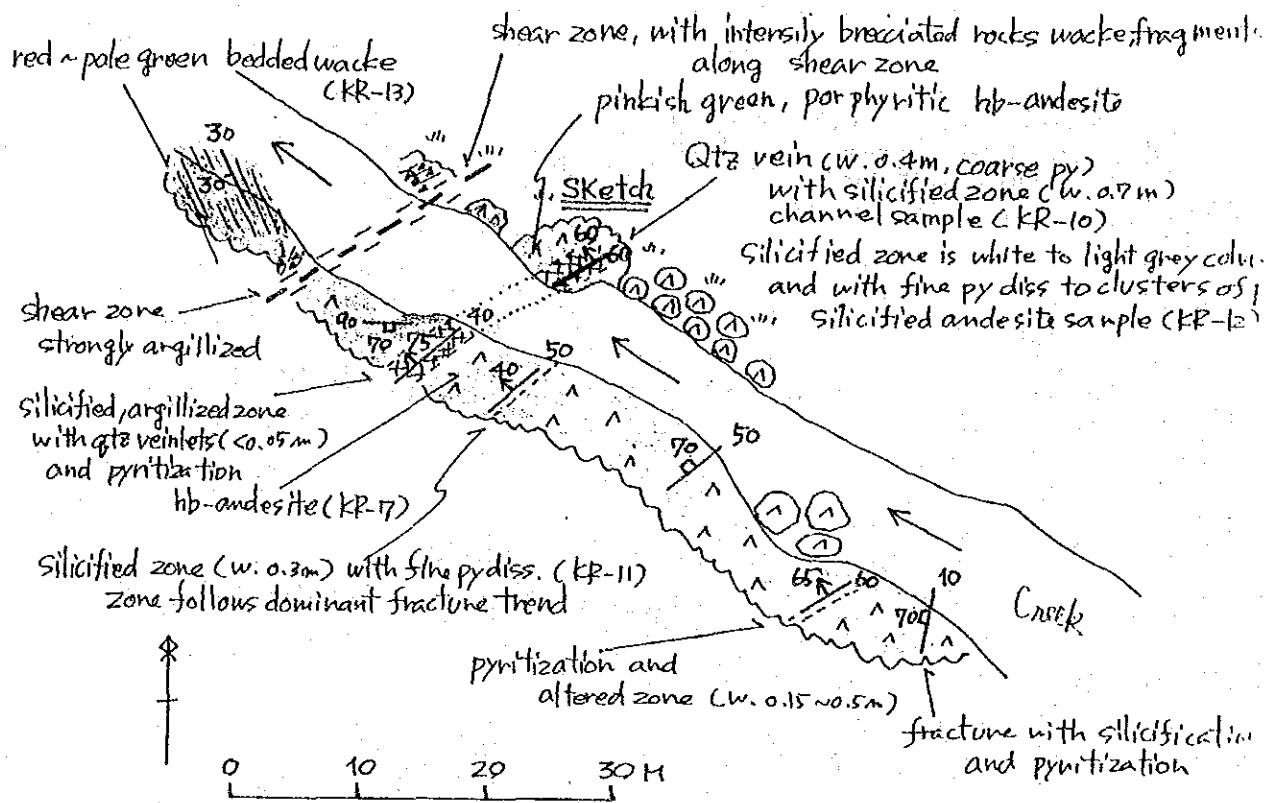 shear zone, with intensily brecciated rocks wacke, fragment
along shear zone
red ~ pale green bedded wacke
(KR-13)
pinkish green, porphyritic hb-andesite
30
30
Qtz vein (w. 0.4m, coarse py)
with silicified zone (w. 0.7m)
channel sample (KR-10)
Sketch
60
60
Silicified zone is white to light grey
and with fine py diss to clusters of
silicified andesite sample (KR-12)
shear zone
strongly argillized
90
70
75
40
50
40
Silicified, argillized zone
with qtz veinlets (<0.05m)
and pyritization
hb-andesite (KR-7)
70
50
Silicified zone (w. 0.3m) with fine py diss. (KR-11)
zone follows dominant fracture trend
65
60
10
70
Creek
pyritization and
altered zone (w. 0.15~0.5m)
fracture with
and pyritization
0 10 20 30 M